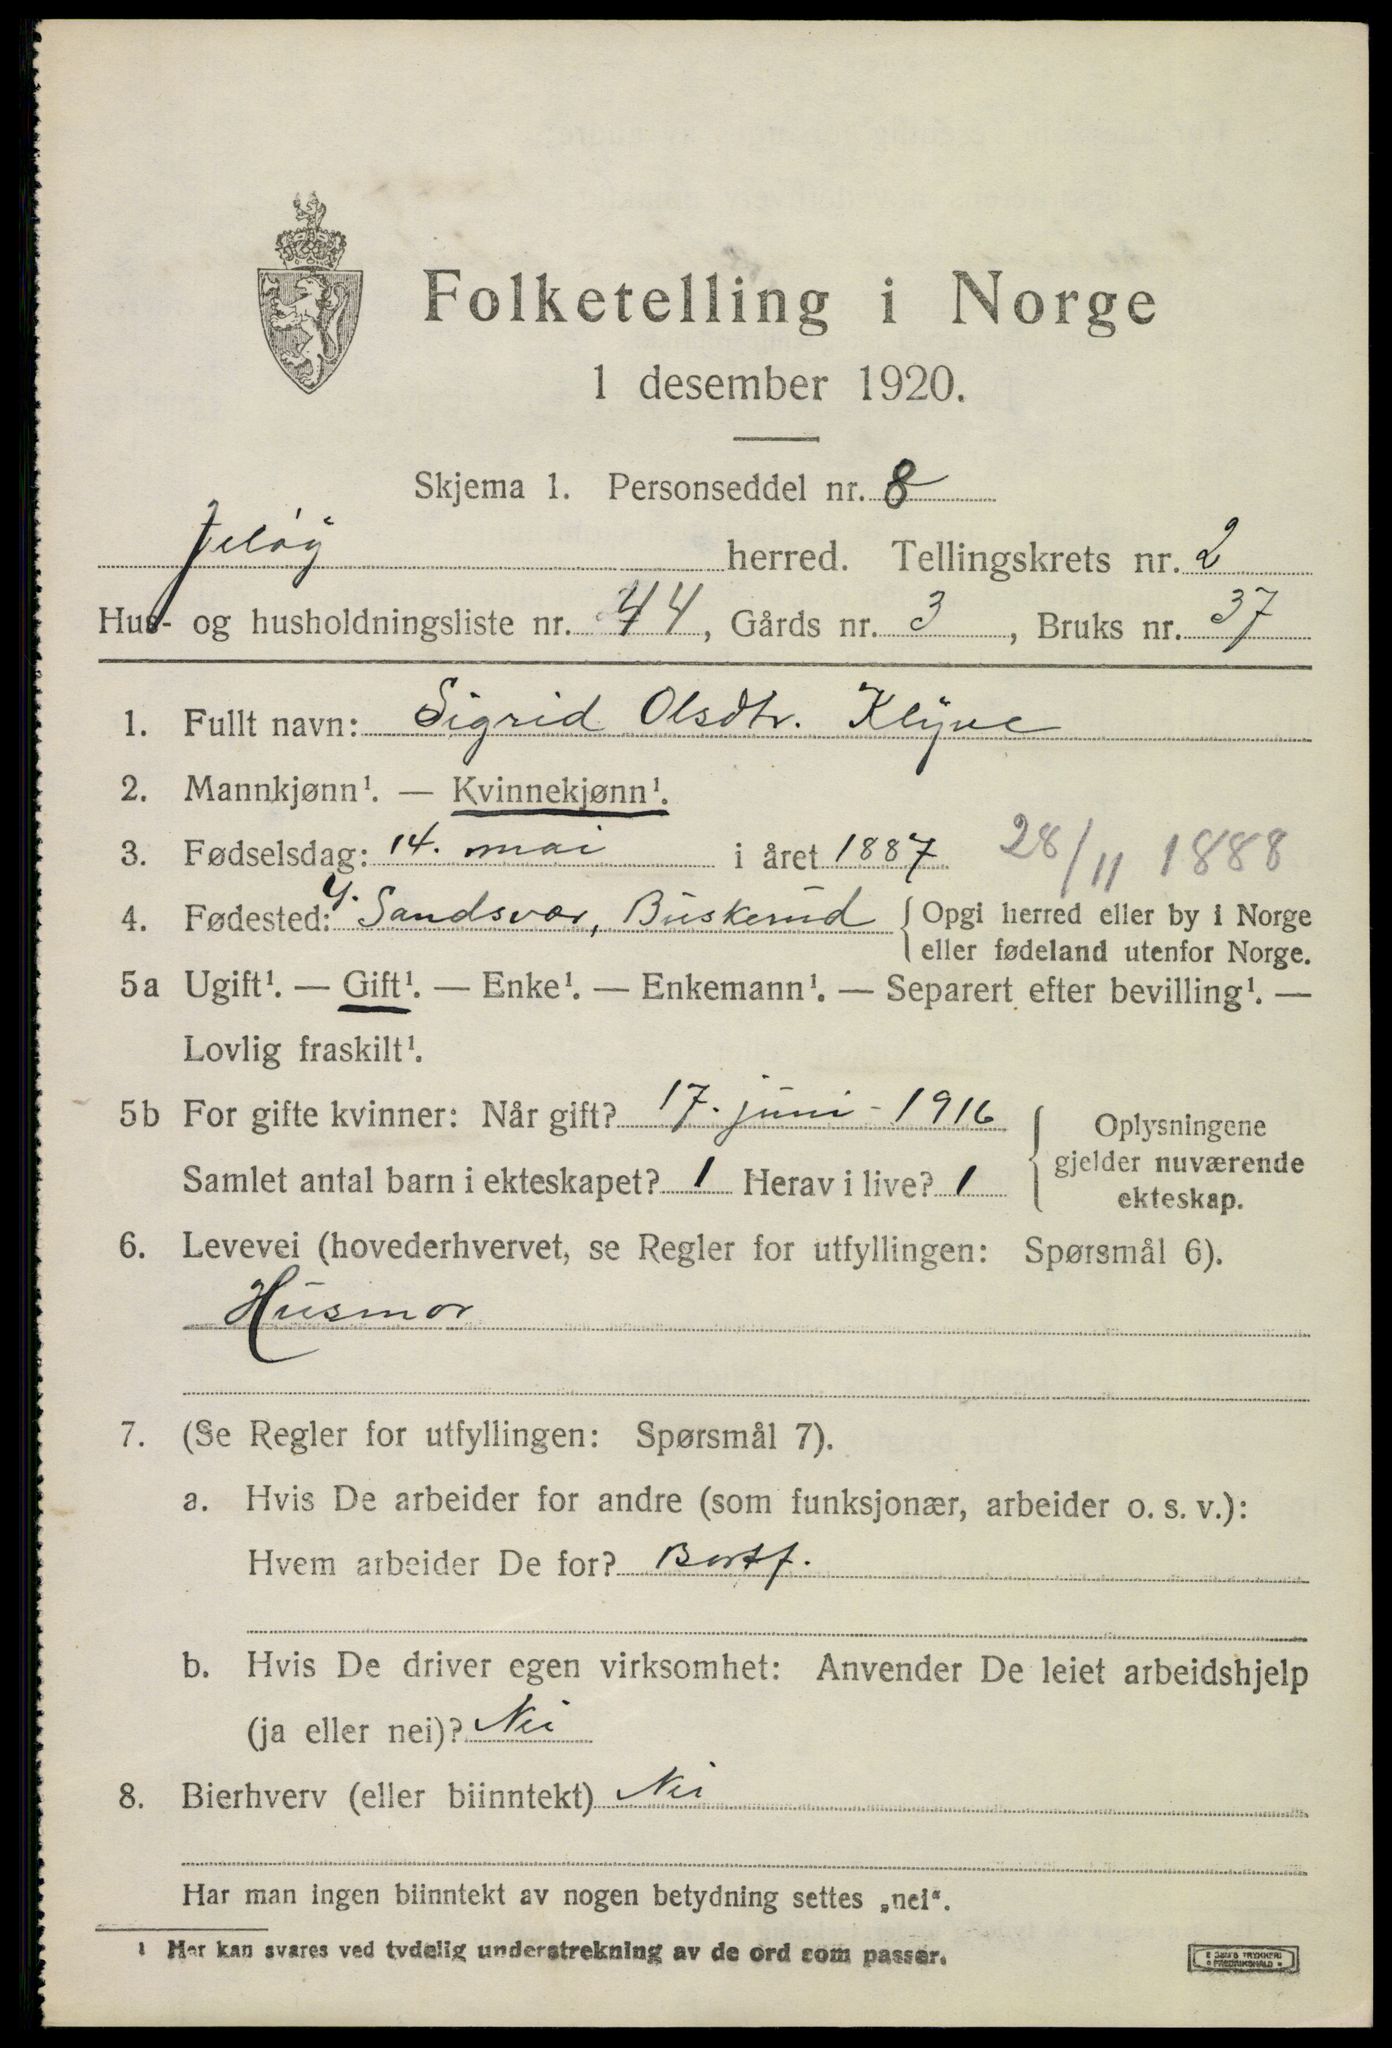 Folketelling i Norge
1 desember 1920.
Skjema 1. Personseddel nr. 8
Jeløy herred. Tellingskrets nr. 2
Hus- og husholdningsliste nr. 44, Gårds nr. 3, Bruks nr. 37
1. Fullt navn: Sigrid Olsdtr. Klyve
2. Mannkjønn¹. — Kvinnekjønn¹.
3. Fødselsdag: 14. mai i året 1887 28/11 1888
4. Fødested: Y. Sandsvær, Buskerud { Opgi herred eller by i Norge
eller fødeland utenfor Norge.
5a Ugift¹. — Gift¹. — Enke¹. — Enkemann¹. — Separert efter bevilling¹. —
Lovlig fraskilt¹.
5b For gifte kvinner: Når gift? 17. juni - 1916
Samlet antal barn i ekteskapet? 1 Herav i live? 1
{ Oplysningene
gjelder nuværende
ekteskap.
6. Levevei (hovederhvervet, se Regler for utfyllingen: Spørsmål 6).
Husmor
7. (Se Regler for utfyllingen: Spørsmål 7).
a. Hvis De arbeider for andre (som funksjonær, arbeider o. s. v.):
Hvem arbeider De for? Bortf.
b. Hvis De driver egen virksomhet: Anvender De leiet arbeidshjelp
(ja eller nei)? Nei
8. Bierhverv (eller biinntekt) Nei
Har man ingen biinntekt av nogen betydning settes „nei“.
1 Her kan svares ved tydelig understrekning av de ord som passer.
TRYKKERI
FREDRIKSHALD